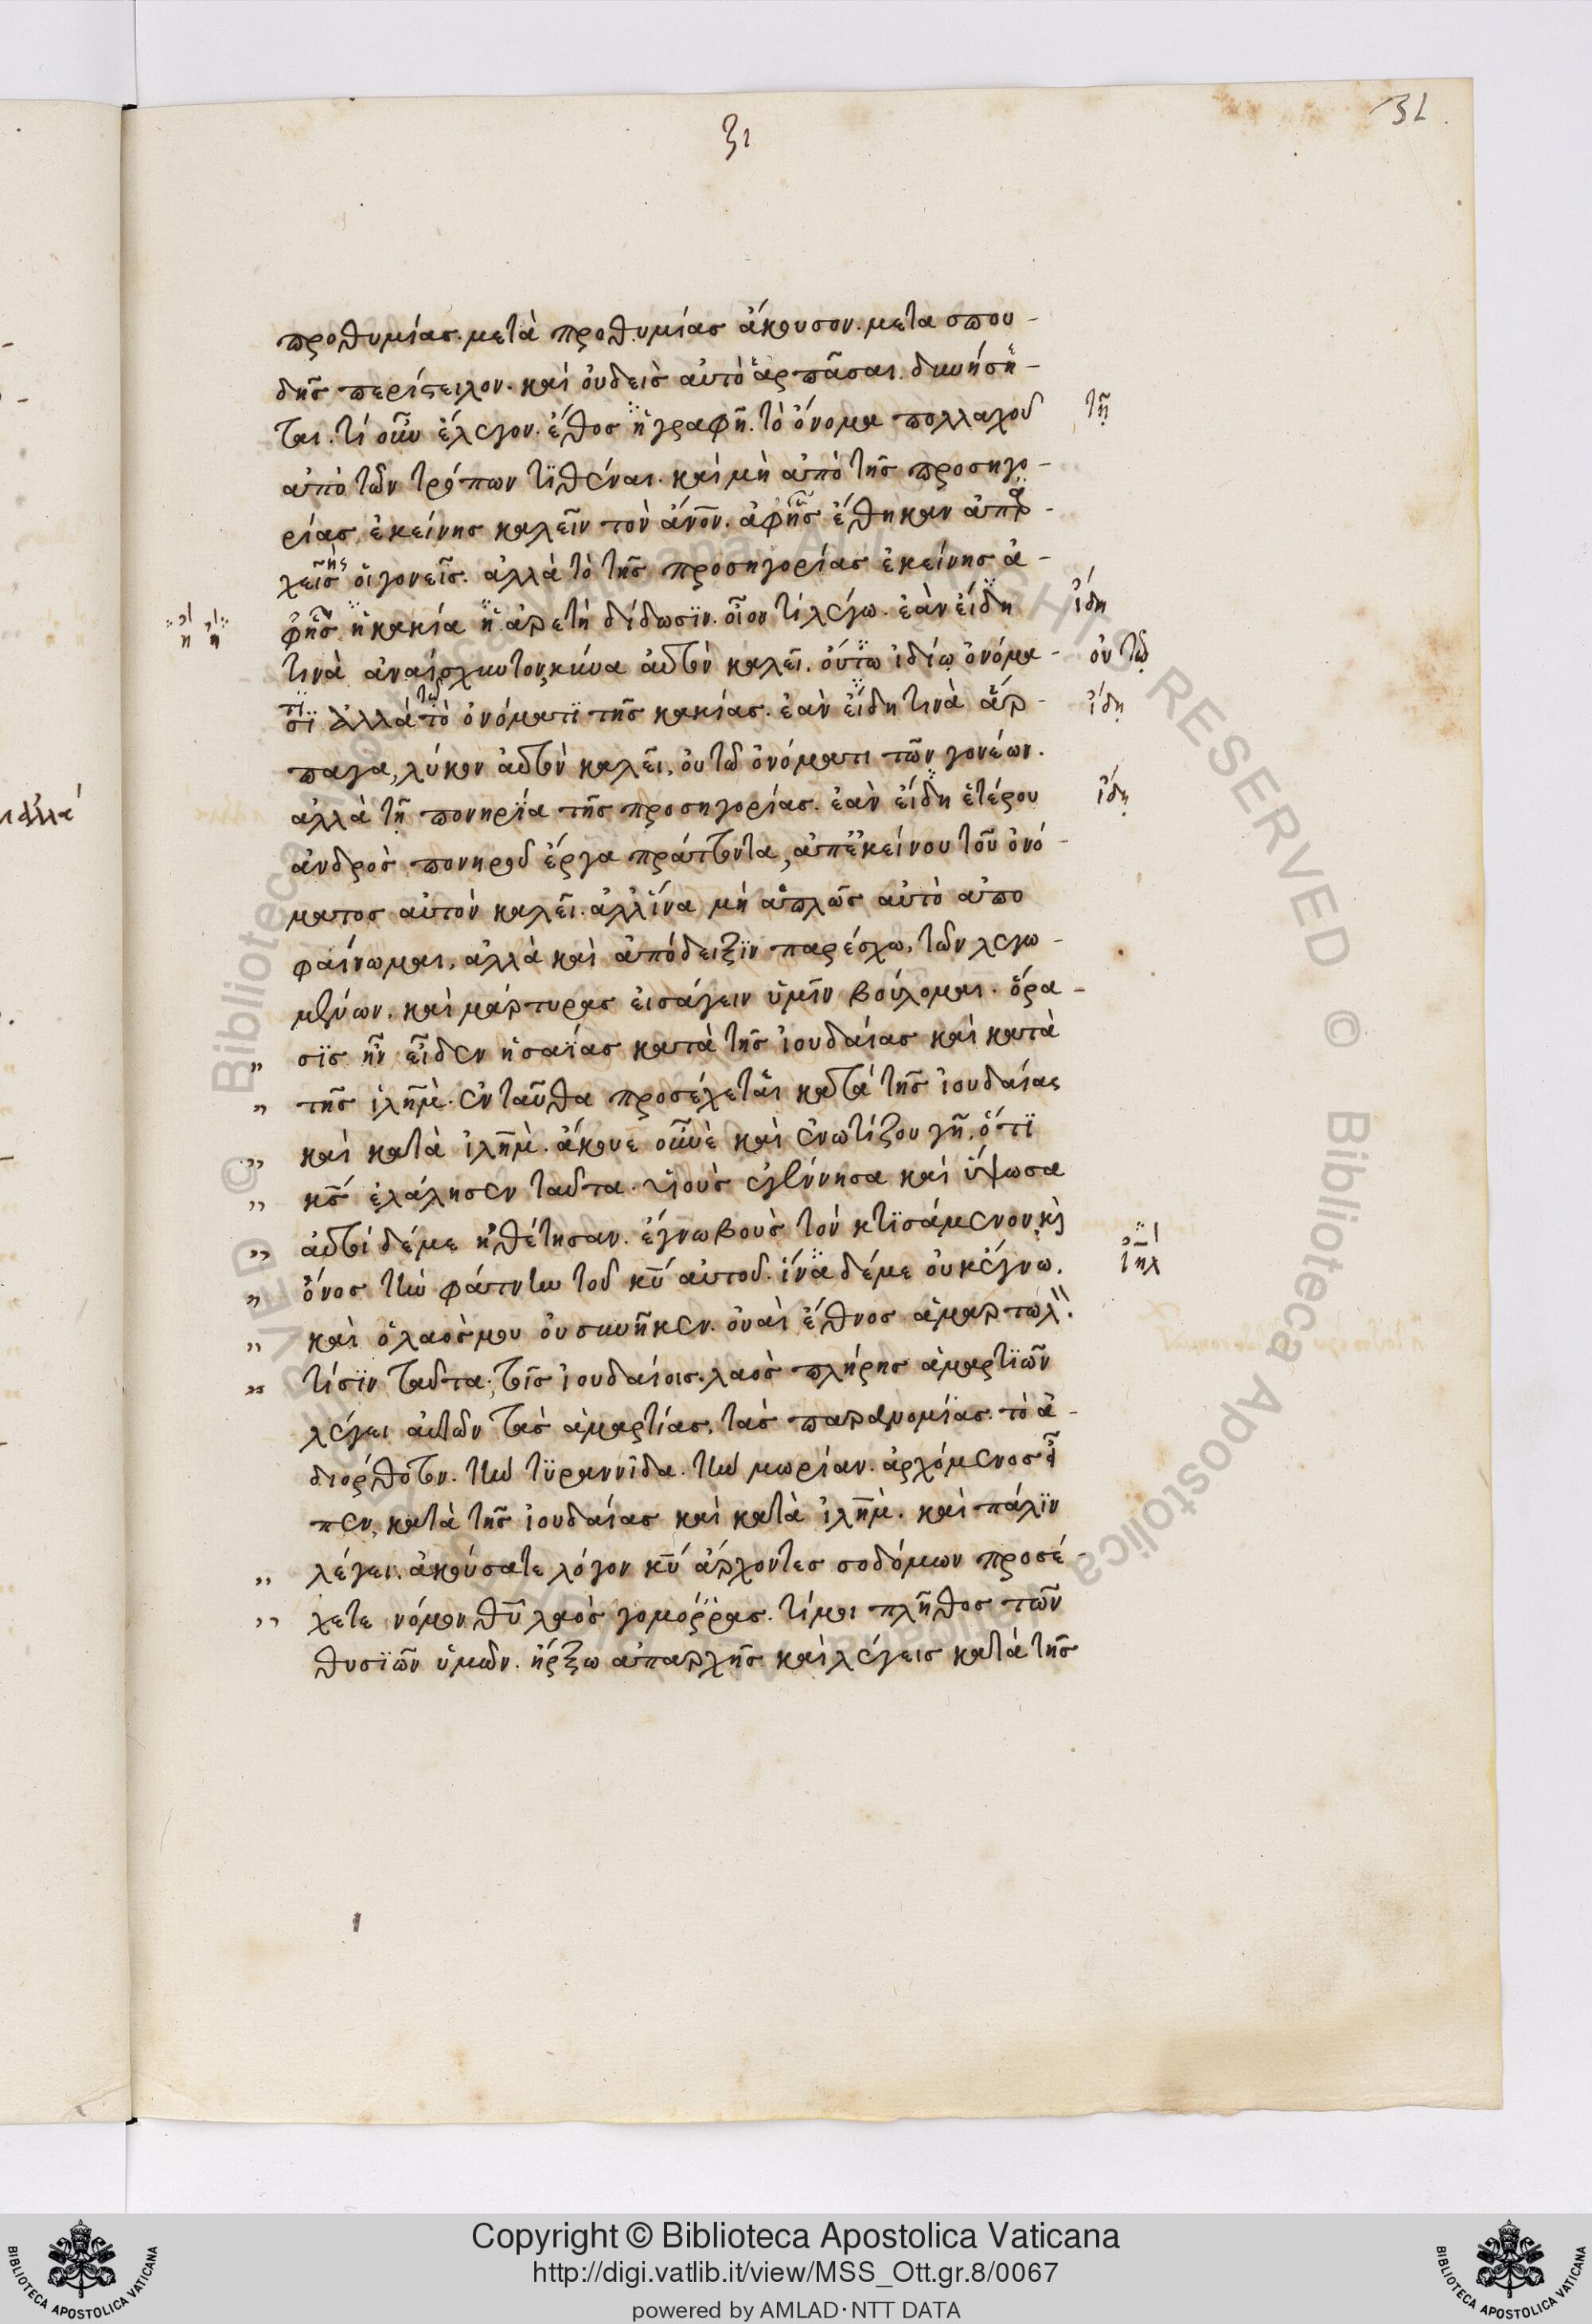 31
31
προθυμίας. μετὰ προθυμίας ἄκουσον. μετα σπου-
δῆς περίστειλον. καὶ οὐδεὶς αὐτὸ ἁρπᾶσαι. δυνήσε-
ται. τί οὖν ἔλεγον. ἔθος ἡ γραφῆ. τὸ ὄνομα πολλαχοῦ
τῆ
ἀπὸ τῶν τρόπων τϊθέναι. καὶ μὴ ἀπὸ τῆς προσηγο-
ρίας, ἐκείνης καλεῖν τὸν ἄνον. ἀφῆς ἔθηκαν ἀπαρ-
χῆς οἱ γονεῖς. ἀλλὰ τὸ τῆς προσηγορίας ἐκείνης ἀ-
φῆς. ἡ κακία ἡ ἀρετὴ δίδωσϊν. οἷον τί λέγω. ἐὰν εἴδη
ἢ ἢ
ἴδη
τινὰ ἀναίσχυντον, κύνα αὐτὸν καλεῖ. οὕτω ἰδίω ὀνόμα-
οὐ τῶ
σϊ ἀλλὰ τὸ ὀνόματϊ τῆς κακίας. ἐὰν εἴδη τινὰ ἅρ-
τι
τῶ
ἴδη
παγα, λύκον αὐτὸν καλεῖ, οὐ τῶ ὀνόματι τῶν γονέων.
ἀλλὰ τῆ πονηρία τῆς προσηγορίας. ἐὰν εἴδη ἑτέρου
ἴδη
ἀνδρὸς πονηροῦ ἔργα πράττοντα, ἀπ ἐκείνου τοῦ ὀνό-
ματος αὐτὸν καλεῖ. ἀλλ ἵνα μὴ ἁπλῶς αὐτὸ ἀπο
φαίνωμαι, ἀλλὰ καὶ ἀπόδειξϊν παρέσχω, τῶν λεγω-
μένων. καὶ μάρτυρας εἰσάγειν ὑμῖν βούλομαι. ὅρα-
„ σϊς ἣν εἶδεν ἡσαΐας κατὰ τῆς ἰουδαίας καὶ κατὰ
„ τῆς ἰλημ. ἐνταῦθα προσέχεται κατὰ τῆς ἰουδαίας
„ καὶ κατὰ ἰλημ. ἄκουε οὐνὲ καὶ ἐνωτίζου γῆ, ὅτϊ
„ κς ἐλάλησεν ταῦτα. υἱοὺς ἐγέννησα καὶ ὕψωσα
„ αὐτοὶ δέ με ἠθέτησαν. ἔγνω βοῦς τὸν κτϊσάμενον κὶ
„ ὄνος τὴν φάτνην τοῦ κυ αὐτοῦ. ἵνα δέ με οὐκ ἔγνω.
ἰηλ
„ καὶ ὁ λαός μου οὐ συνῆκεν. οὐαὶ ἔθνος ἁμαρτωλ.
„ τίσϊν ταῦτα; τοῖς ἰουδαίοις. λαὸς πλήρης ἁμαρτϊῶν
λέγει αὐτῶν τὰς ἁμαρτίας. τὰς παρανομίας. τὸ ἀ-
διόρθοτον. τὴν τϋραννίδα. τὴν μωρίαν. ἀρχόμενος εἶ
πεν, κατὰ τῆς ἰουδαίας καὶ κατὰ ἰλημ. καὶ πάλϊν
„ λέγει. ἀκούσατε λόγον κυ ἄρχοντες σοδόμων προσέ-
„ χετε νόμον θυ λαὸς γομόρρας. τί μοι πλῆθος τῶν
θυσϊῶν ὑμῶν. ἤρξω ἀπαρχῆς καὶ λέγεις κατὰ τῆς
Copyright © Biblioteca Apostolica Vaticana
http://digi.vatlib.it/view/MSS_Ott.gr.8/0067
powered by AMLAD·NTT DATA
BIBLIOTECA APOSTOLICA VATICANA
BIBLIOTECA APOSTOLICA VATICANA